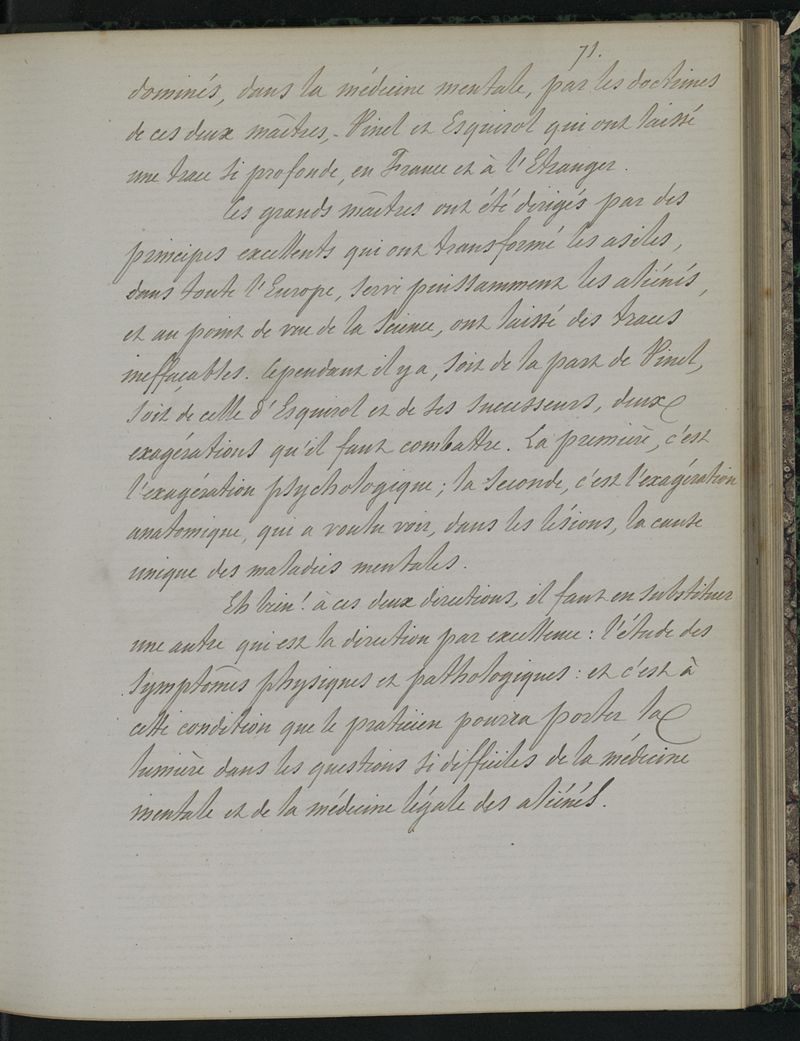 71.
dominés, dans la médecine mentale, par les doctrines
de ces deux maîtres, - Pinel et Esquirol qui ont laissé
une trace si profonde, en France et à l'Etranger.
Ces grands maîtres ont été dirigés par des
principes excellents qui ont transformé les asiles,
dans toute l'Europe, servi puissamment les aliénés,
et au point de vue de la Science, ont laissé des traces
ineffaçables. Cependant il y a, soit de la part de Pinel,
soit de celle d'Esquirol et de ses successeurs, deux
exagérations qu'il faut combattre. La première, c'est
l'exagération psychologique; la seconde, c'est l'exagération
anatomique, qui a voulu voir, dans les lésions, la cause
unique des maladies mentales.
Eh bien! à ces deux directions, il faut en substituer
une autre qui est la direction par excellence: l'étude des
symptômes physiques et pathologiques: et c'est à
cette condition que le praticien pourra porter la
lumière dans les questions si difficiles de la médecine
mentale et de la médecine légale des aliénés.